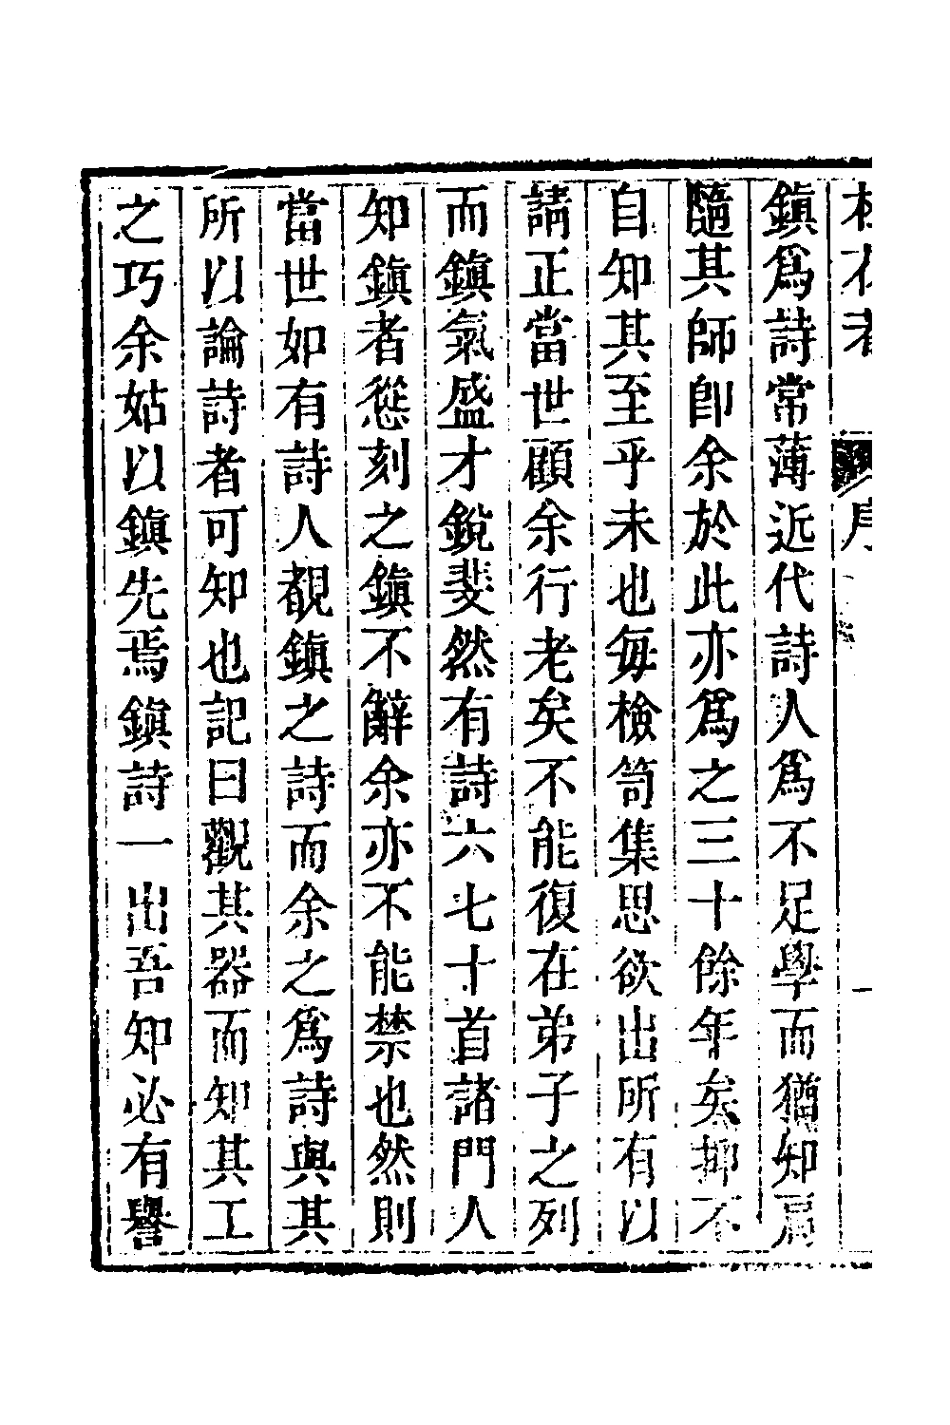 序
一
鎮爲詩常薄近代詩人爲不足學而猶知肩
隨其師卽余於此亦爲之三十餘年矣抑不
自知其至乎未也每檢笥集思欲出所有以
請正當世顧余行老矣不能復在弟子之列
而鎮氣盛才銳斐然有詩六七十首諸門人
知鎮者慫刻之鎮不辭余亦不能禁也然則
當世如有詩人覩鎮之詩而余之爲詩與其
所以論詩者可知也記曰觀其器而知其工
之巧余姑以鎮先焉鎮詩一出吾知必有譽